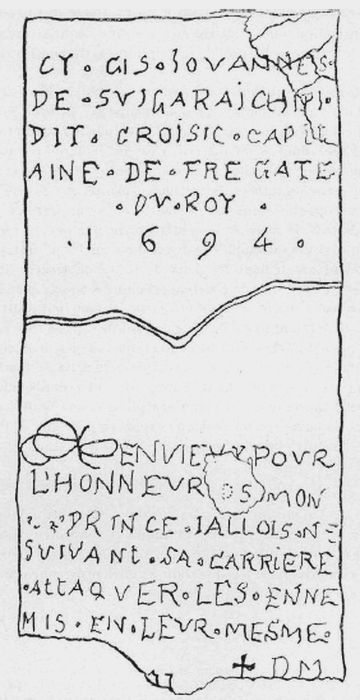 CY · GIS · IOVANNES ·
DE · SVIGARAICHIPI ·
DIT · CROISIC · CAPIT
AINE · DE · FREGATE
· DV · ROY ·
· 1 6 9 4 ·
ENVIEVX POUR
L'HONNEUR MON
PRINCE · IALLOIS · NE
SUIVANt · SA · CARRIERE
· AttAQVER · LES · ENNE
MIS · EN · LEVR · MESME ·
✝ DM